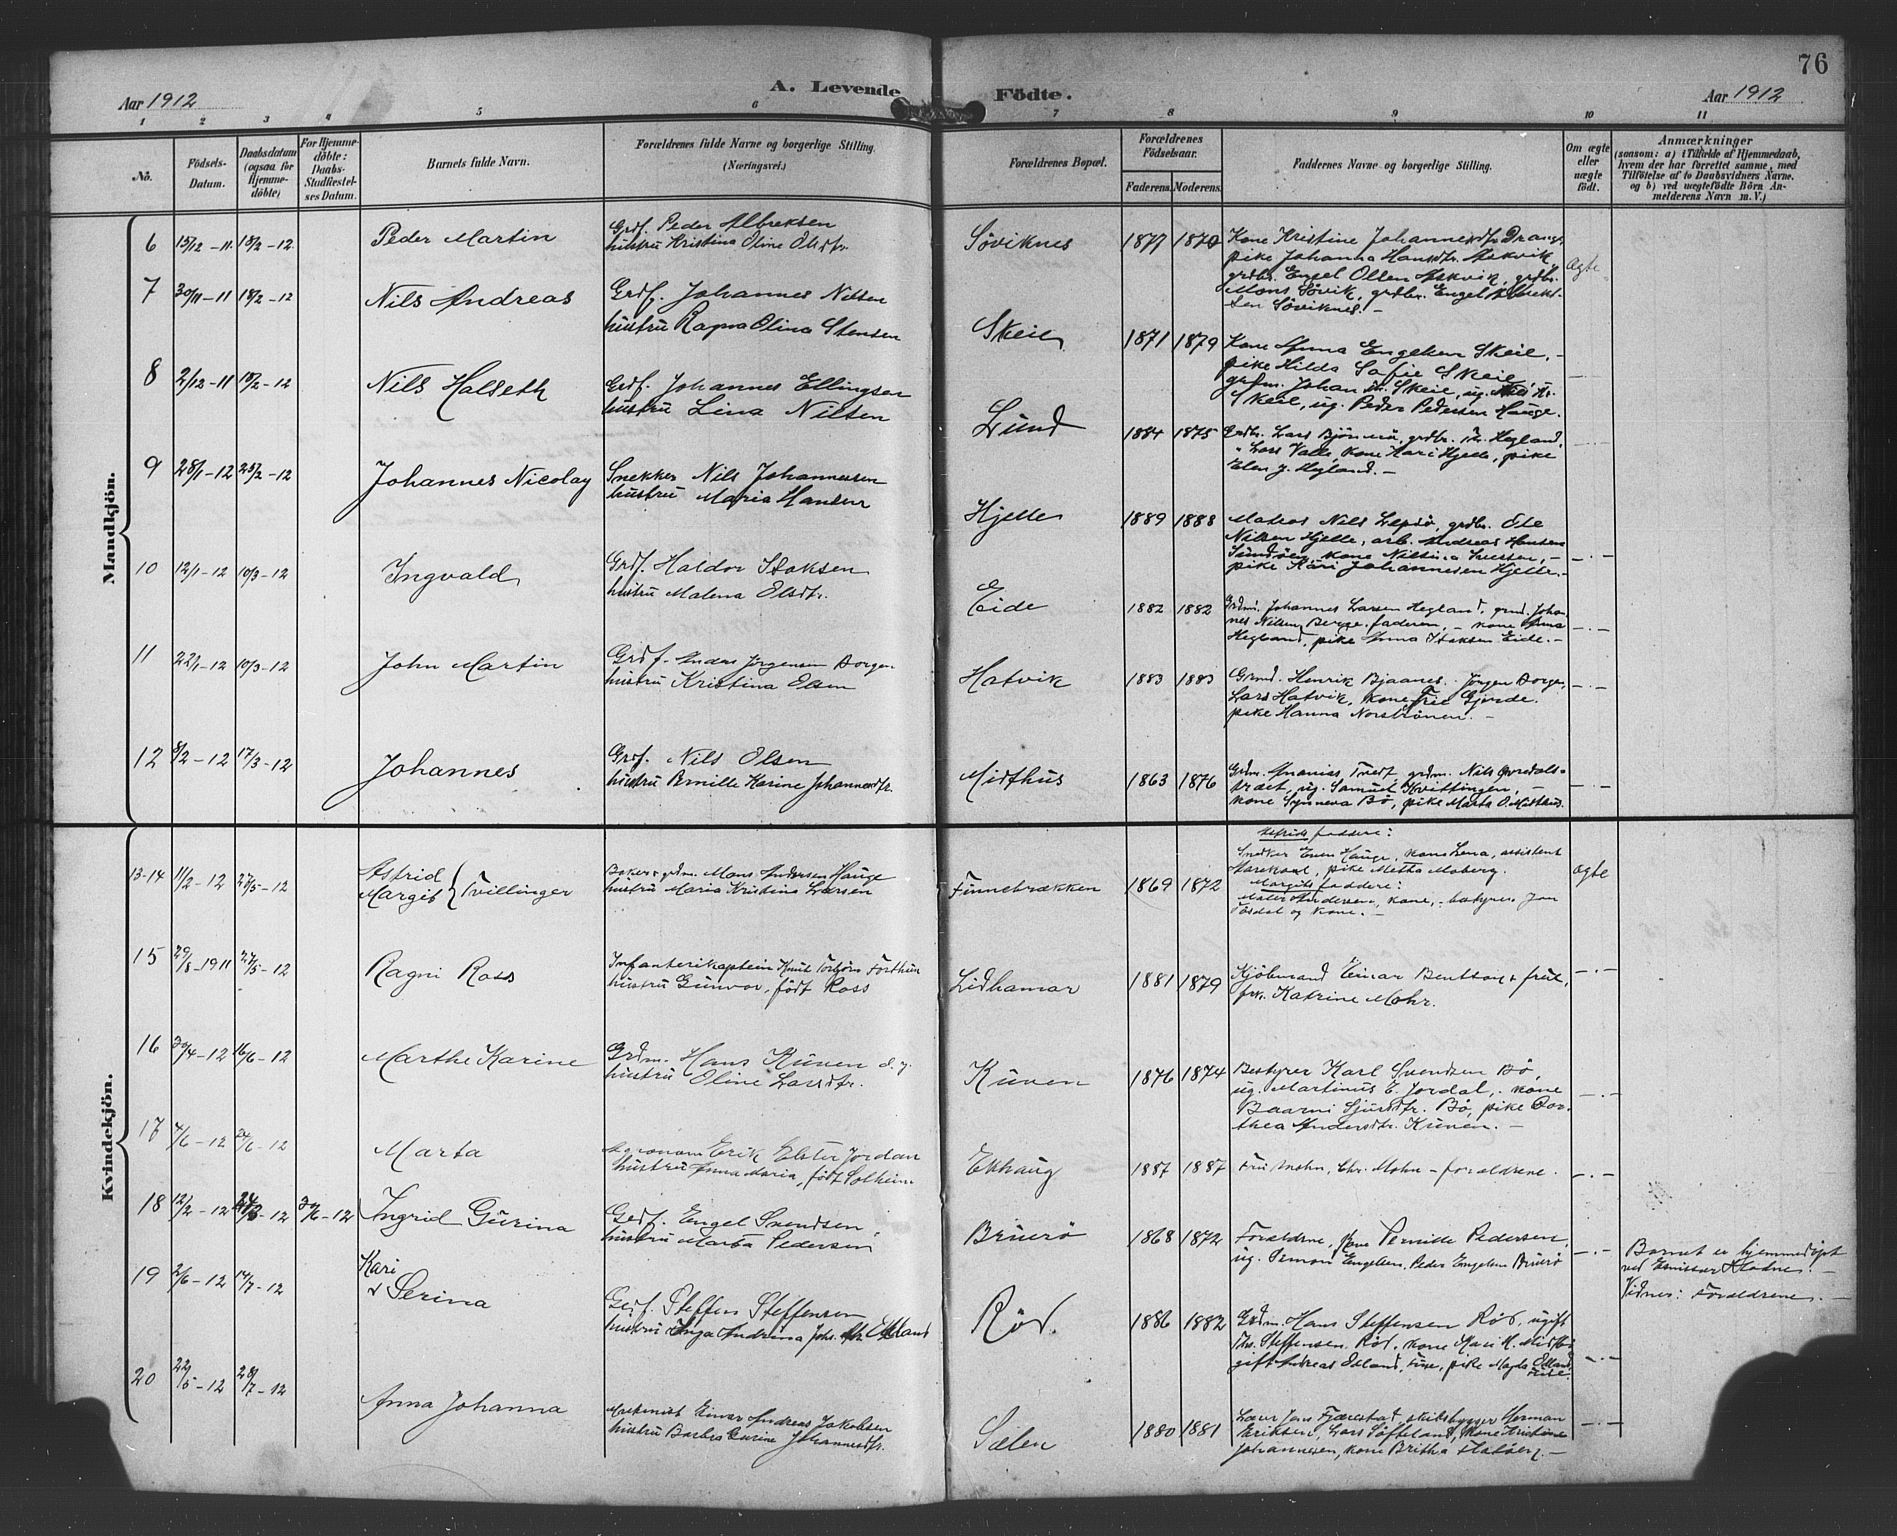 76
Aar 1912
A. Levende Födte.
Aar 1912
1 2 3 4 5 6 7 8 9 10 11
No.
Födsels-Datum.
Daabsdatum (ogsaa for Hjemme-döbte)
For Hjemme-döbte: Daabs-Stadfæstel-ses Datum.
Barnets fulde Navn.
Forældrenes fulde Navne og borgerlige Stilling. (Næringsvei.)
Forældrenes Bopæl.
Forældrenes Födselsaar.
Faderens. Moderens.
Faddernes Navne og borgerlige Stilling.
Om ægte eller uægte födt.
Anmærkninger
(saasom: a) i Tilfælde af Hjemmedaab, hvem der har forrettet samme, med Tilföielse af to Daabsvidners Navne. og b) ved uægtefödte Börn An-melderens Navn m. V.)
Mandkjön.
6 15/12-11 18/2-12 Peder Martin
Grdf. Peder Albreksen
hustru Kristina Oline Olsdtr.
Söviknes 1877 1870
Kone Kristine Johannesdtr Drange,
pike Johanna Hansdtr. Askvik,
grdbr. Engel Olsen Askvik, grdbr.
Mons Sövik, grdbr. Engel Albrekt-
sen Söviknes. -
Ægte
7 30/11-11 18/2-12 Nils Andreas
Grdf. Johannes Nilsen
hustru Ragna Olina Stensen
Skeie 1871 1879
Kone Anna Engelsen Skeie, -
pike Hilda Sofie Skeie,
grdm. Johan Skeie, ug. Nils
Skeie, ug. Peder Pedersen Hauge.
8 2/12-11 18/2-12 Nils Halseth
Grdf. Johannes Ellingsen
hustru Lina Nilsen
Lund 1884 1875
Grdbr. Lars Björnen, grdbr. Hegland,
" Lars Valle, kone Kari Hjelle, pike
Elen J. Hegland. -
9 28/1-12 25/2-12 Johannes Nicolay
Snekker Nils Johannessen
hustru Maria Hansen
Hjelle 1889 1888
Matros Nils Lepsö, grdbr. Ole
Nilsen Hjelle, arb. Andreas Hansen
Sundöen, kone Nilsina Larsen, -
pike Kari Johannesen Hjelle. -
10 12/1-12 10/3-12 Ingvald
Grdf. Haldor Isaksen
hustru Malena Olsdtr.
Eide 1882 1882
Grdm. Johannes Larsen Hegland, grmd. Joha-
nes Nilsen Berge. faderen, - kone Anna
Hegland, pike Anna Isaksen Eide. -
11 22/1-12 10/3-12 John Martin
Grdf. Anders Jörgensen Borgen
hustru Kristina Olsen
Hatvik 1883 1883
Grmd. Henrik Bjaanes. Jörgen Borgen,
Lars Hatvik, kone Gjerde.
pike Hanna Norströnen. -
12 8/2-12 17/3-12 Johannes
Grdf. Nils Olsen
hustru Pernille Karine Johannesdtr.
Midthus 1863 1876
Grdm. Ananias Tvedt, grdm. Nils Övredals-
træet, ug. Samuel Kvittingen, -
kone Synneva Bö, pike Marta O. Midthus.
Kvindekjön.
13-14 11/2-12 27/5-12 Astrid
Margit } Tvillinger
Baker & grdm. Mons Andersen Hauge
hustru Maria Kristina Larsen
Finnebrækken 1869 1872
Astrids faddere:
Snedker Even Hauge, kone Lena, assistent
pike Metha Moberg.
Margits faddere:
Maler Andersen, kone, - bestyrer Jan
Tösdal og kone. -
Ægte
15 29/8-1911 27/5-12 Ragni Ross
Infanterikaptein Knut Torbjörn Forthun
hustru Gunvor, födt Ross
Lidhamar 1881 1879
Kjöbmand Einar Bentzon & frue,
frk. Katrine Mohr.
16 30/4-12 16/6-12 Marthe Karine
Grdm. Hans Kuven d. y.
hustru Oline Larsdtr.
Kuven 1876 1874
Bestyrer Karl Svendsen Bö,
ug. Martinus E. Jordal, kone
Baarni Sjursdtr. Bö, pike Dor-
thea Andersdtr. Kuven. -
17 4/6-12 24/6-12 Marta
Agronom Erik Elster Jordan
hustru Anna Maria, födt Solheim
Ekhaug 1887 1887
Fru Mohn, Chr. Mohn - forældrene.
18 12/2-12 -12 30/6-12 Ingrid Gurina
Grdf. Engel Svendsen
hustru Marta Pedersen
Bruarö 1868 1872
Forældrene, kone Pernille Pedersen,
ug. Simon Engelsen, Peder Engelsen Bruarö
Barnet er hjemmedöpt
ved Emissær Kladne. -
Vidner: Forældrene. -
19 2/6-12 14/7-12 Kari
Serina
Grdf. Steffen Steffensen
hustru Inga Andrina Johs. dtr Økland
Röd 1886 1882
Grdm. Hans Steffensen Röd, ugift
Steffensen Röd, kone Mari H. Midtbö
gift Andreas Økland, pike Magda Økland,
20 22/5-12 28/7-12 Anna Johanna
Mekanist Einar Andreas Jakobsen
hustru Barbra Gurine Johannesdtr.
Sælen 1880 1881
Lærer Jens Fjærestad, skibsbygger Herman
Eriksen, Lars Söfteland, kone Kristine
Johannesen, kone Britha Hatöen. -